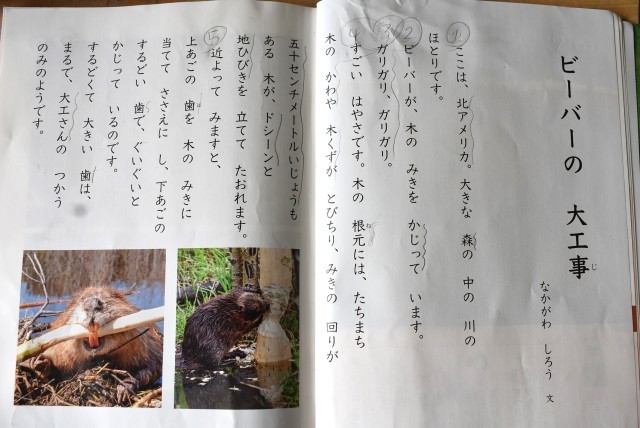 ビーバーの 大工事
じ
なかがわ しろう 文
ここは、北アメリカ。大きな 森の 中の 川の
ほとりです。
ビーバーが、木の みきを かじって います。
ガリガリ、ガリガリ。
すごい はやさです。木の 根元には、たちまち
木の かわや 木くずが とびちり、みきの 回りが
五十センチメートルいじょうも
ある 木が、ドシーンと
地ひびきを 立てて たおれます。
近よって みますと、
上あごの 歯を 木の みきに
当てて ささえに し、下あごの
するどい 歯で、ぐいぐいと
かじって いるのです。
するどくて 大きい 歯は、
まるで、大工さんの つかう
のみのようです。